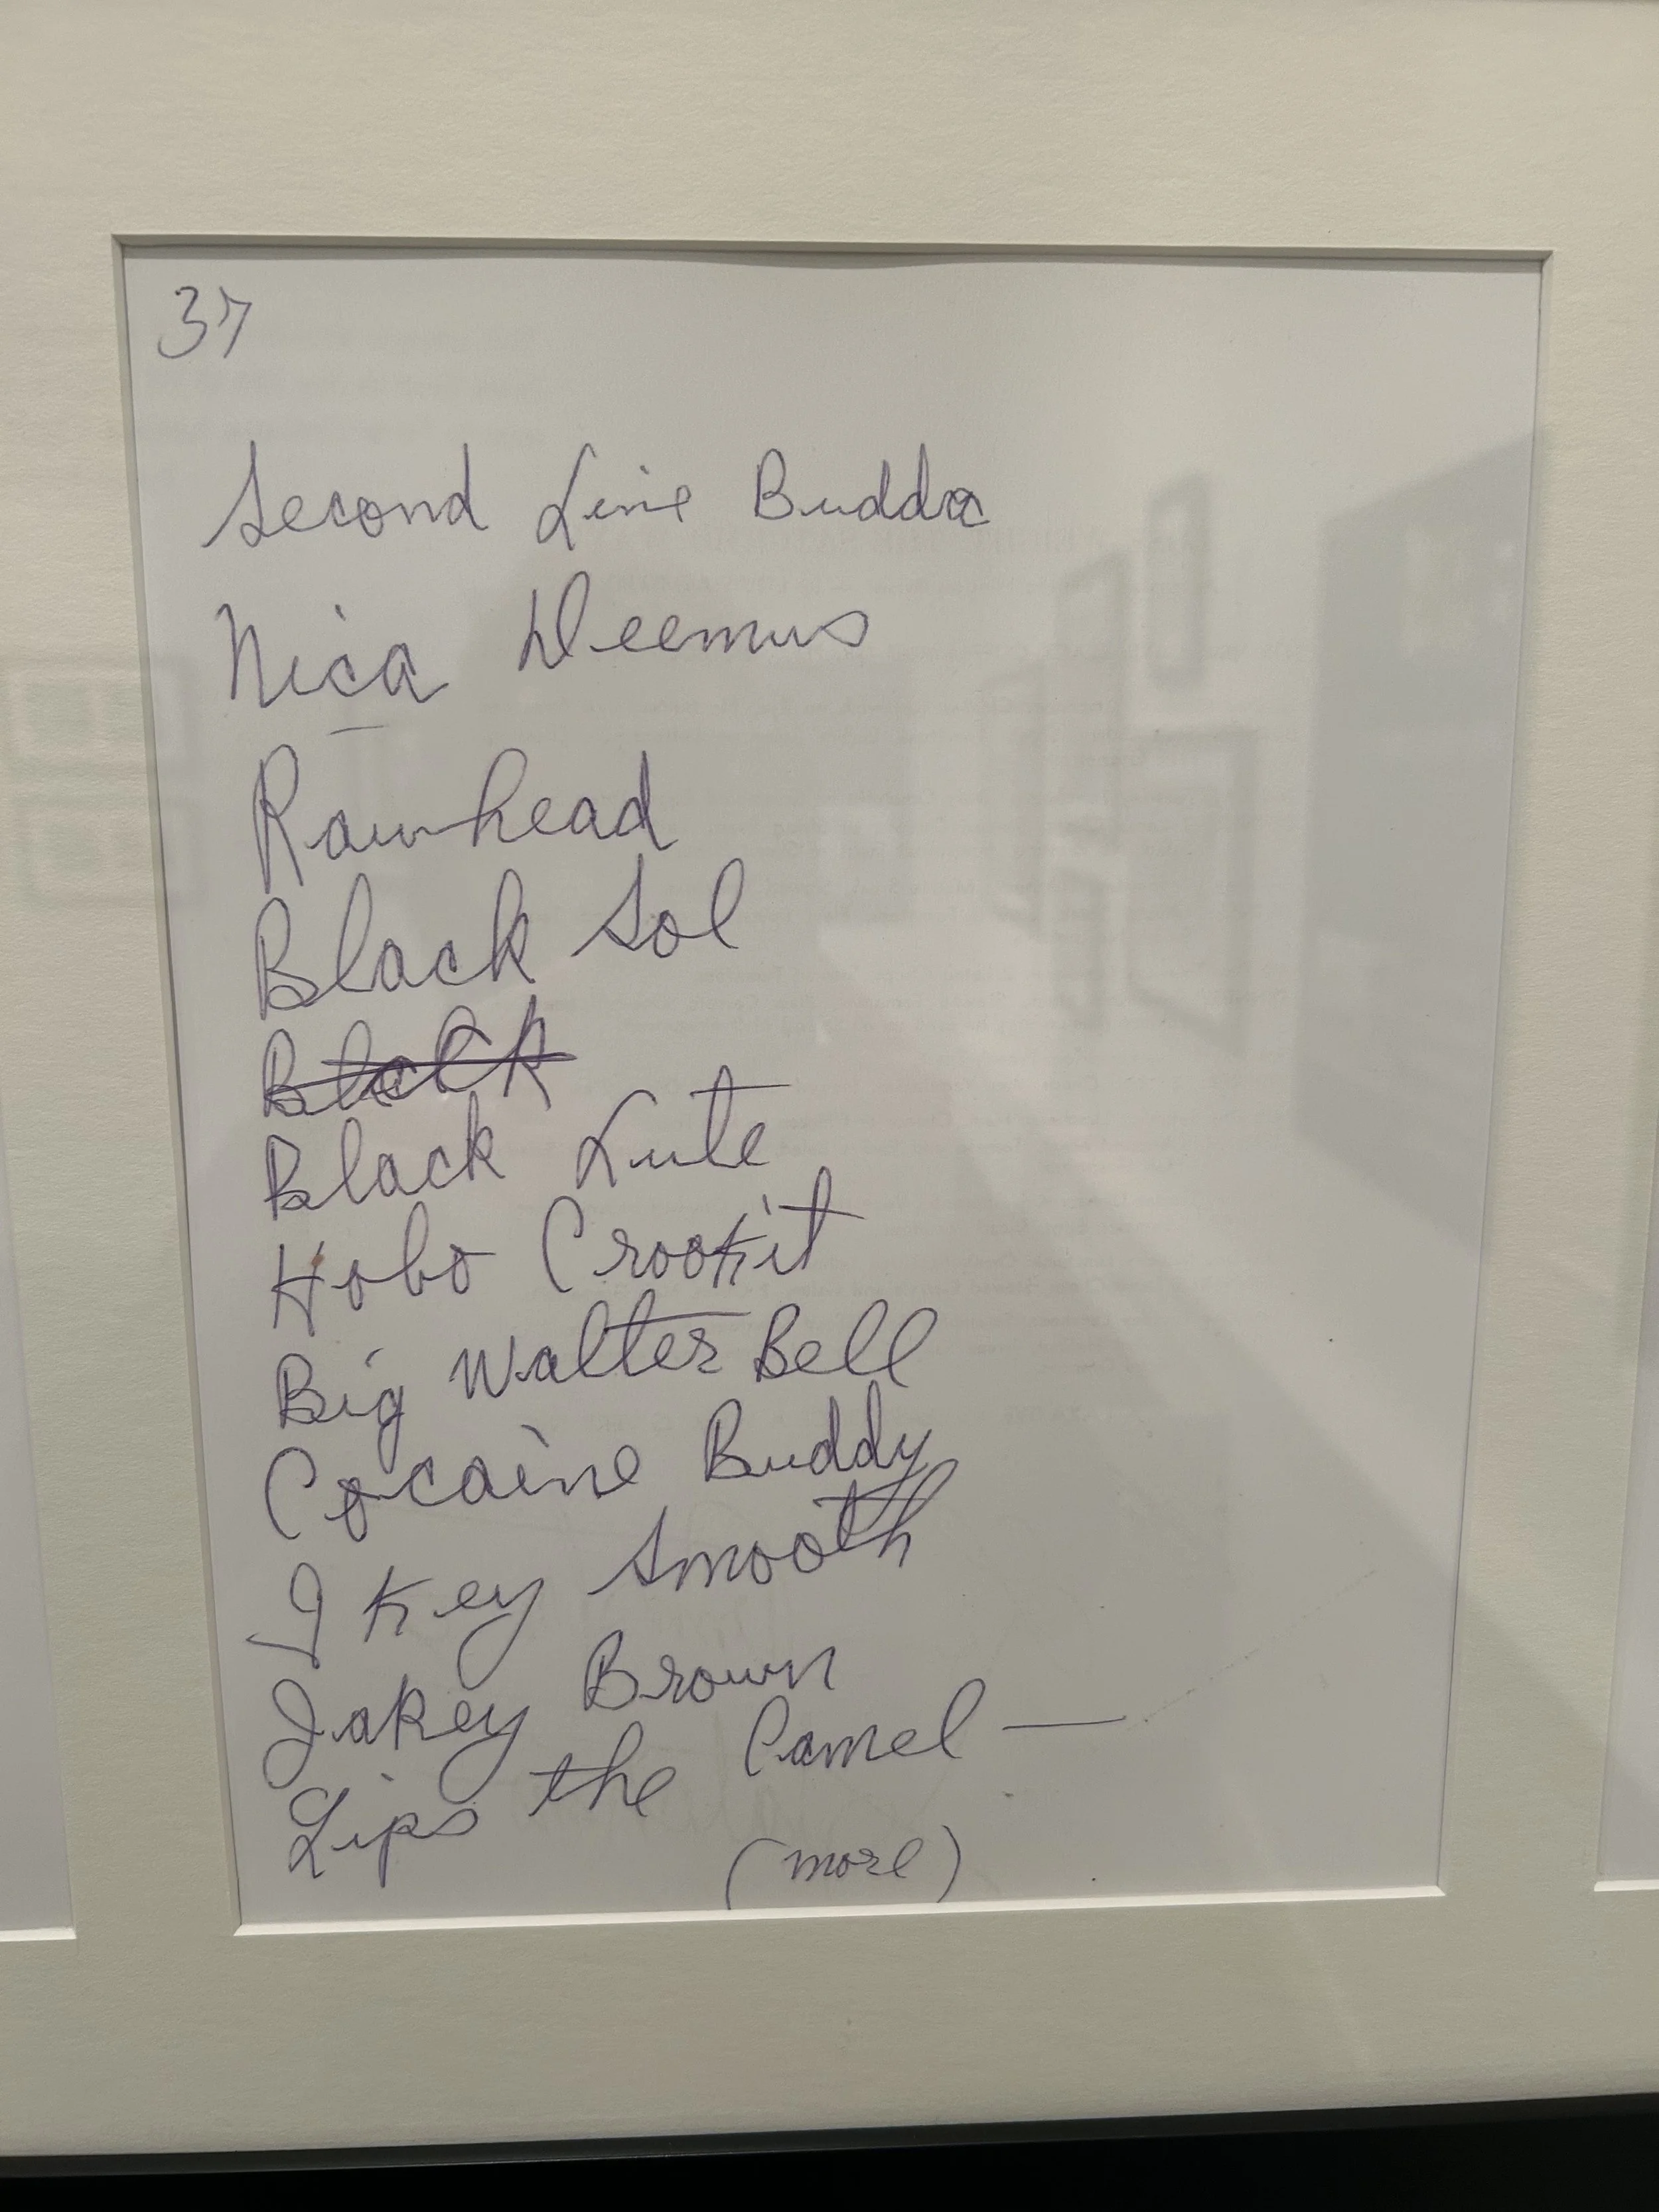 37
Second Line Budda
Nica Deemus
Rawhead
Black Sol
Black
Black Lute
Hobo Crookit
Big Walter Bell
Cocaine Buddy
I Key Smooth
Jakey Brown
Lips the Camel —
(more)